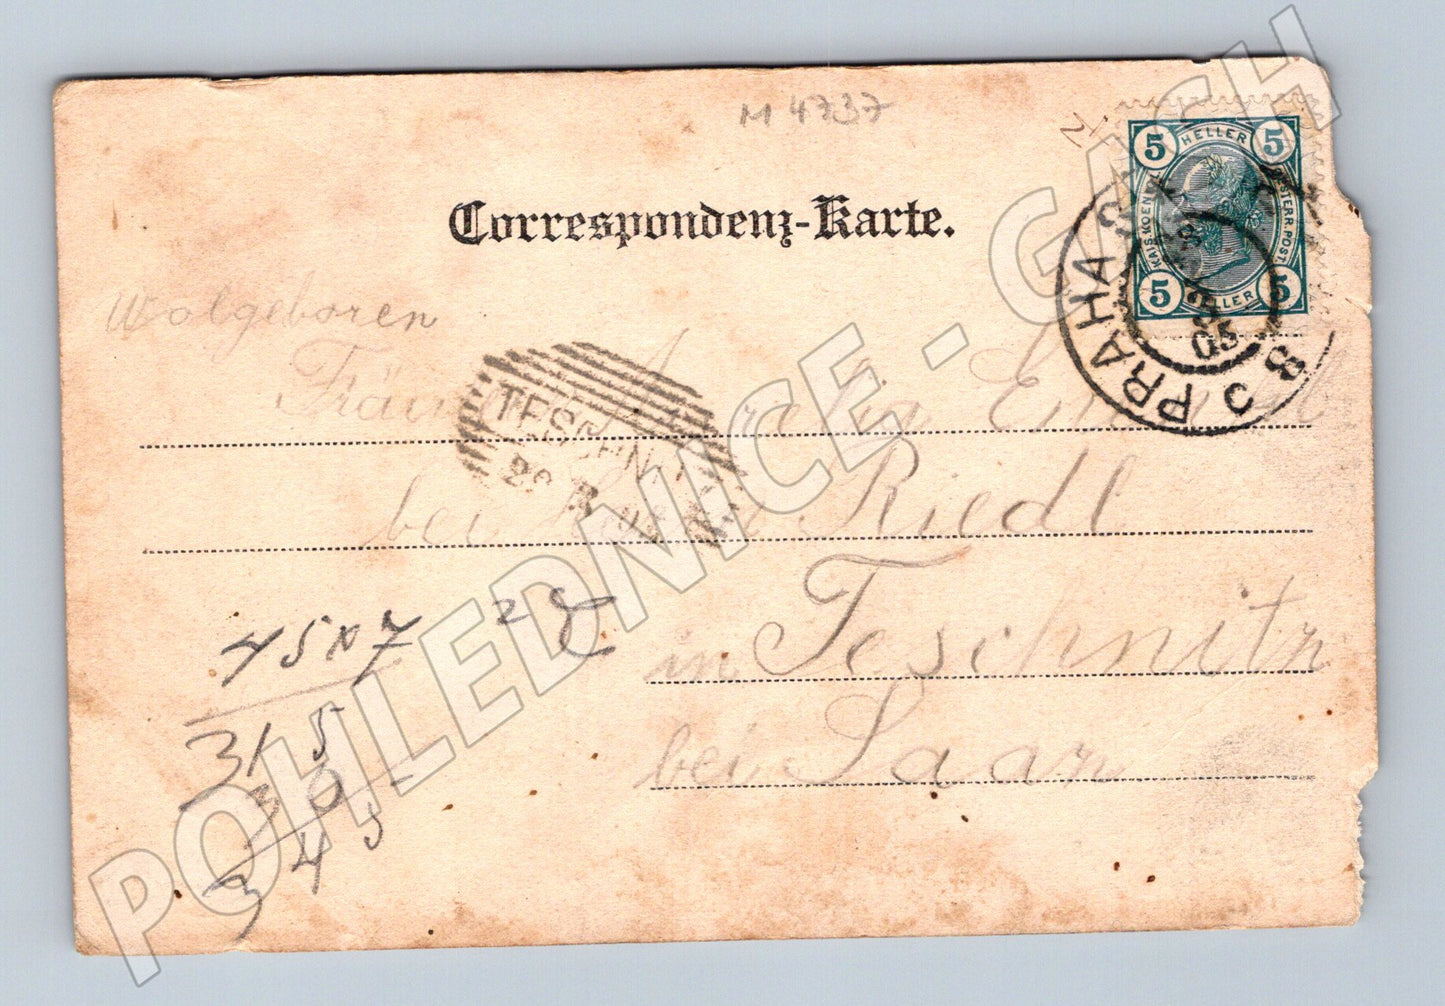 M 4737
5 HELLER 5
KAIS. KOENIGL.
OESTERR. POST.
5 HELLER 5
PRAHA
05
8
Correspondenz-Karte.
Wolgeboren
TESCHNI
bei Riedl
in Teschnitz
bei Saar
45x7
315
30
345
POHLEDNICE - GACH